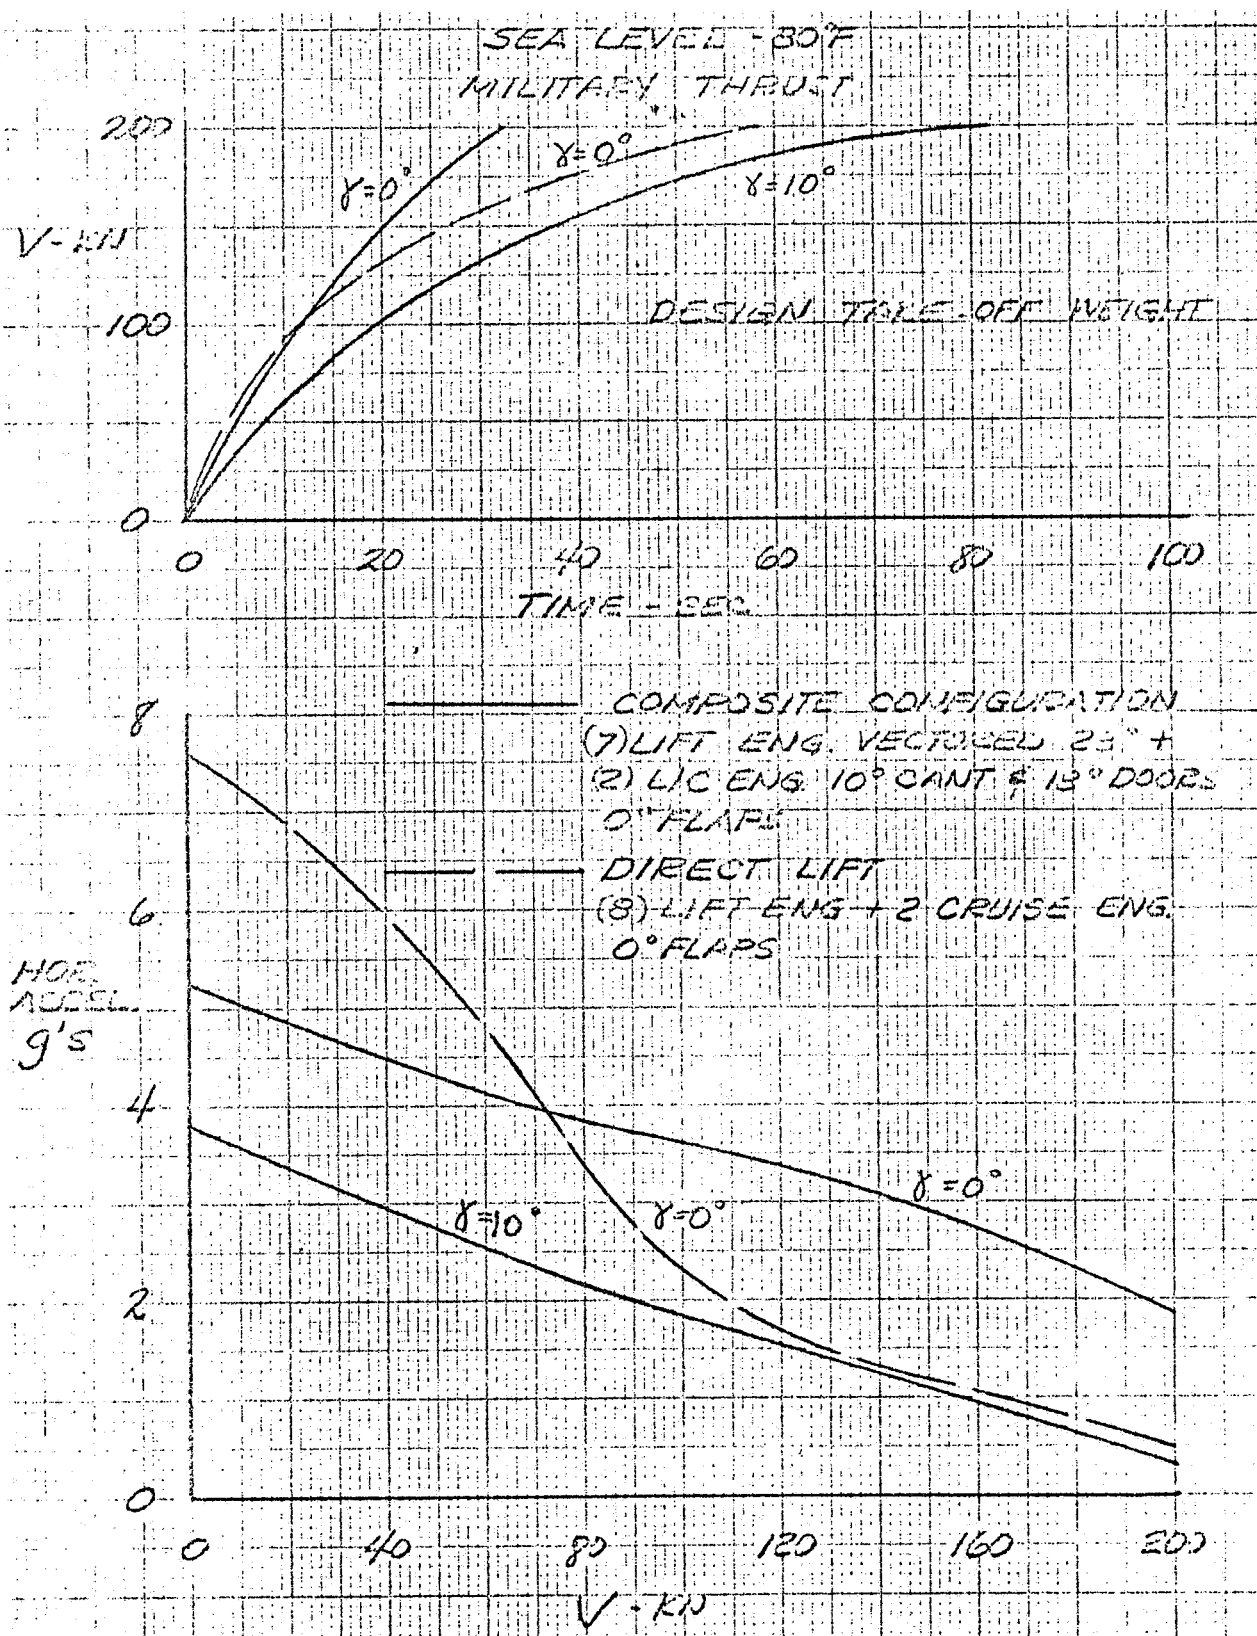 SEA LEVEL - 80°F
MILITARY THRUST
200
γ=0°
γ=0°
γ=10°
V-KN
100
DESIGN TAKE-OFF WEIGHT
0
0 20 40 60 80 100
TIME - SEC
8
COMPOSITE CONFIGURATION
(7) LIFT ENG. VECTORED 23° +
(2) L/C ENG. 10° CANT & 18° DOORS
0° FLAPS
DIRECT LIFT
6
(8) LIFT ENG + 2 CRUISE ENG.
0° FLAPS
HOR.
ACCEL.
g's
4
γ=0°
γ=10°
γ=0°
2
0
0 40 80 120 160 200
V - KN